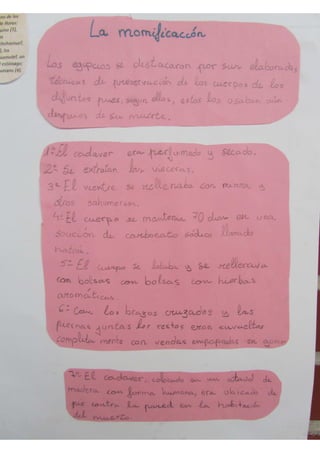 La momificacción
Los egipcios se destacaron por sus elaboradas
técnicas de preservación de los cuerpos de los
difuntos pues, según ellos, estos los usaban aún
despues de su muerte.
1º El cadaver era perfumado y secado.
2º Se extraían las vísceras.
3º El vientre se rellenaba con mirra y
otros sahumerios.
4º El cuerpo se mantenía 70 días en una
solución de carbonato sódico llamado
natrón.
5º El cuerpo se lavaba y se rellenava
con bolsas con bolsas con hierbas
aromáticas
6º Con los brazos cruzados y las
piernas juntas los restos eran envueltos
completa mente con vendas empapadas en goma
7º El cadaver, colocado en un ataúd de
madera con forma humana, era ubicado de
pie contra la pared en la habitación
del muerto.